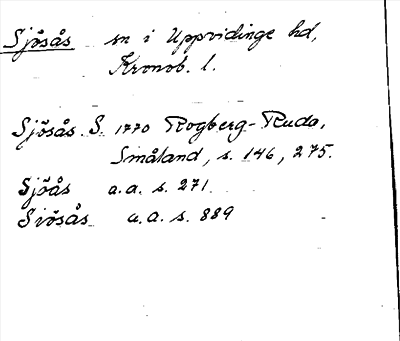 Sjösås sn i Uppvidinge hd,
Kronob. l.
Sjösås. S. 1770 Rogberg-Ruda,
Småland, s. 146, 275.
Sjöås a.a. s. 271.
Siösås a.a. s. 889